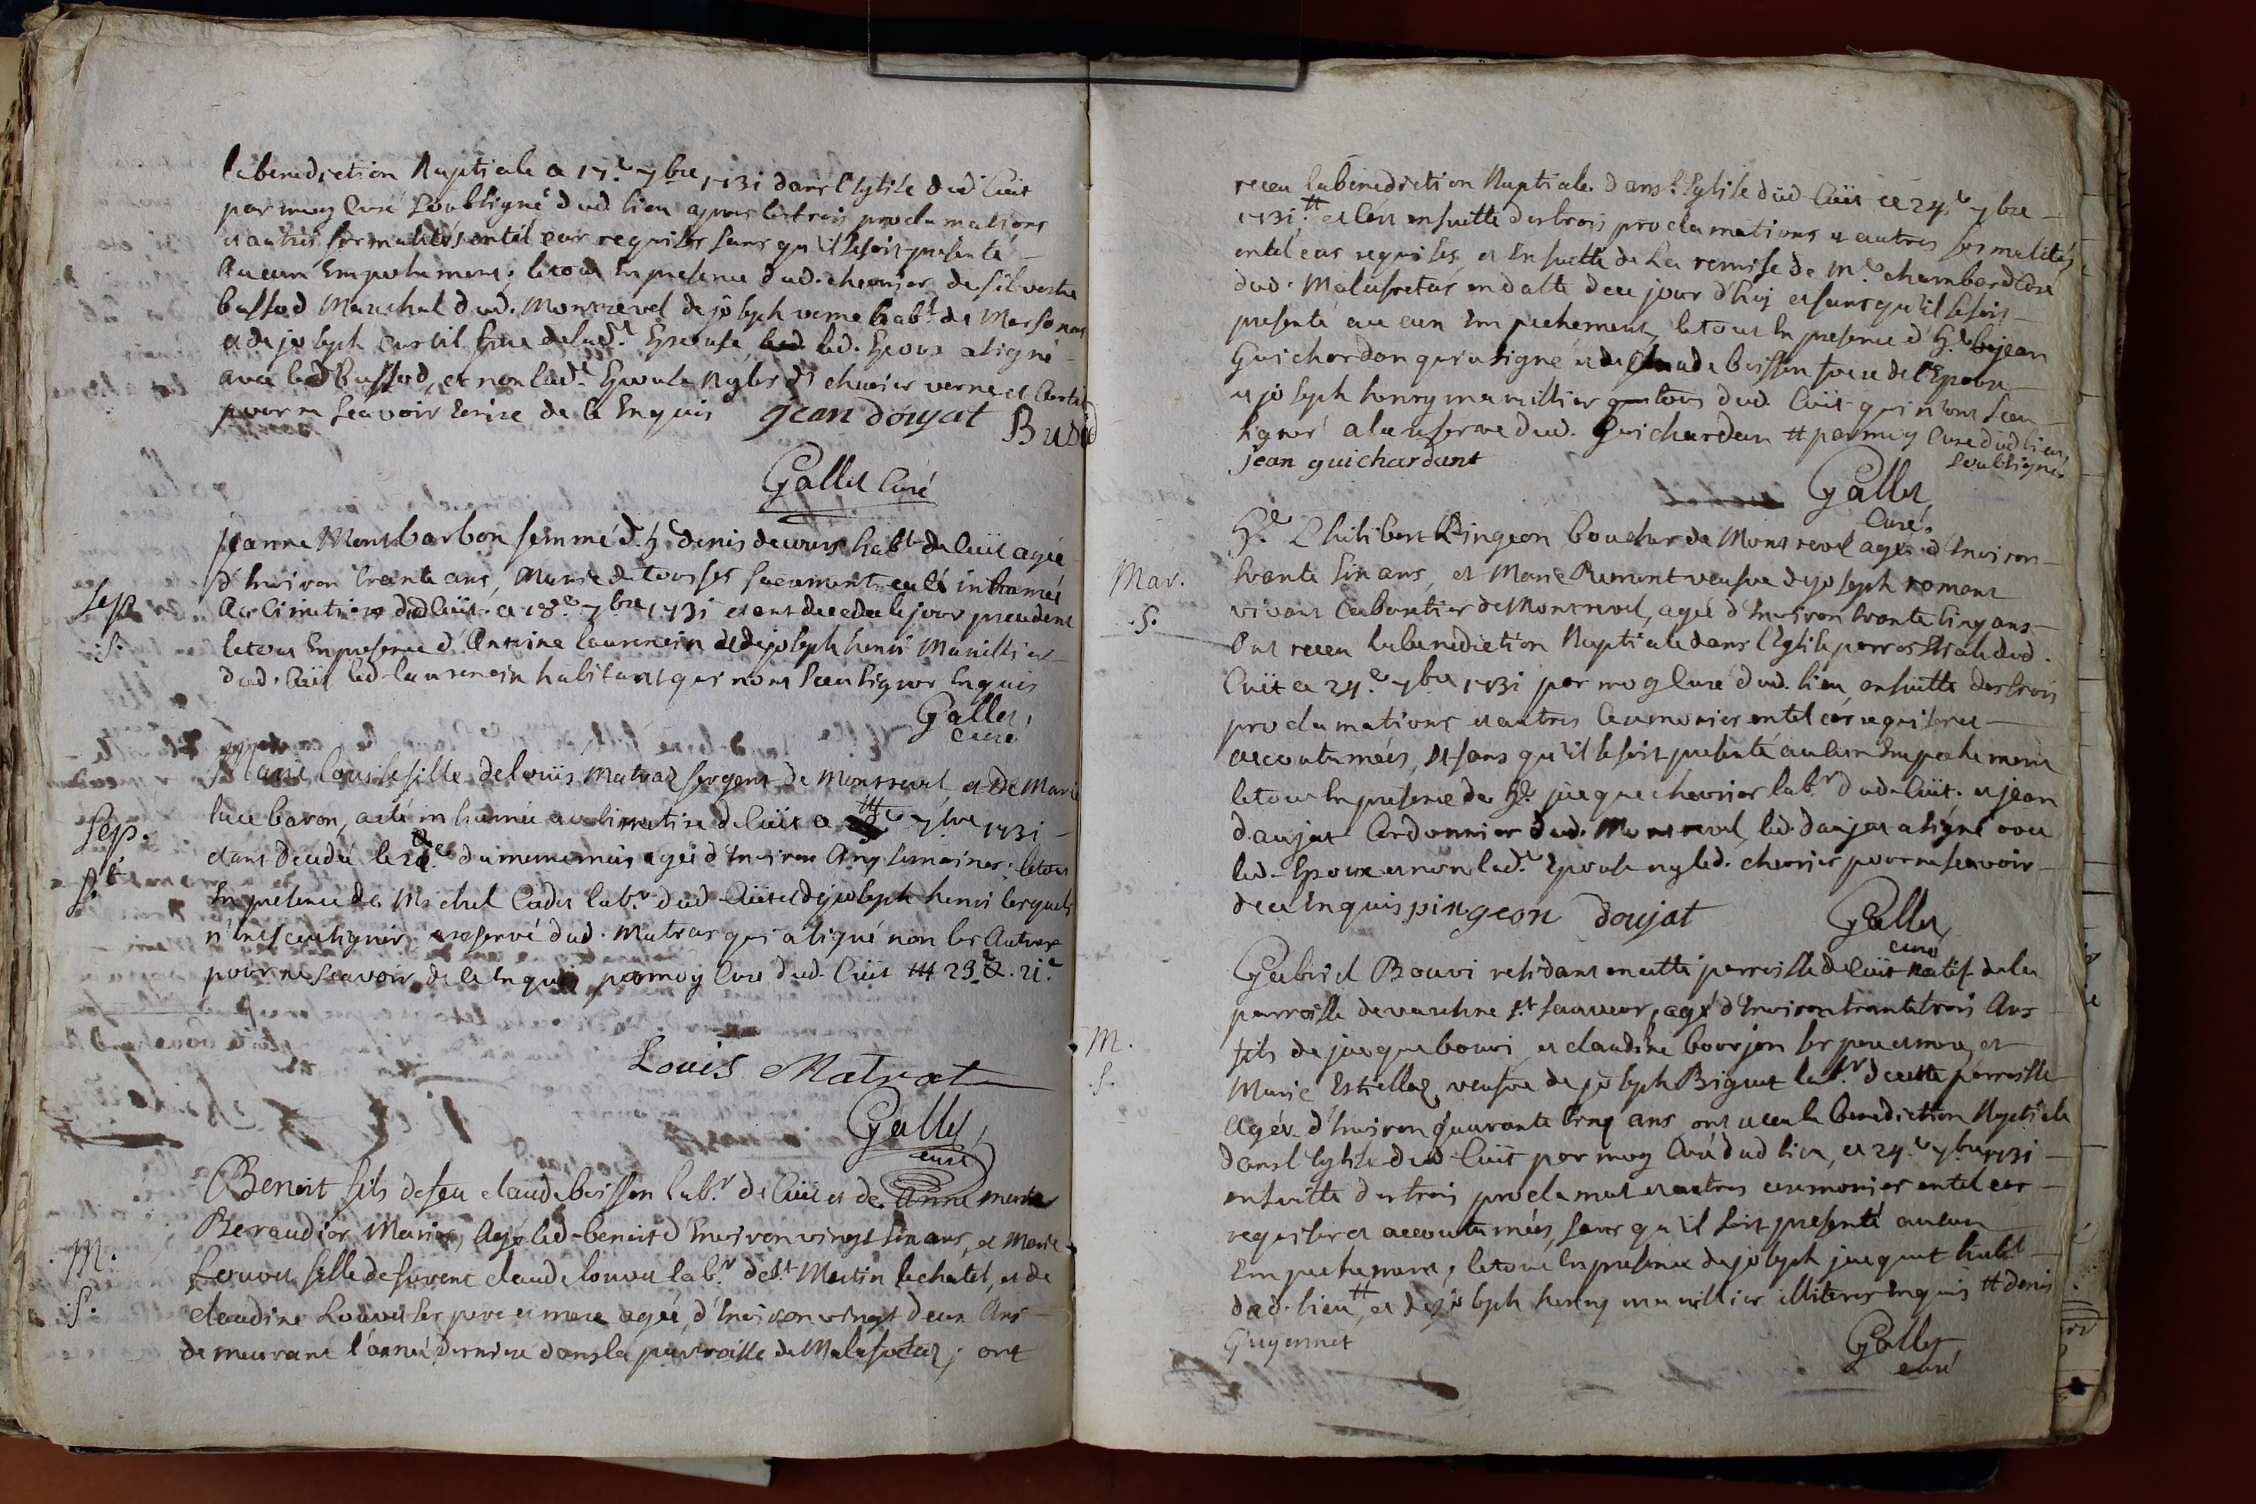 la benediction Nuptiale ce 17.e 7bre 1731 dans l'Eglise dud. Cuit
par moy Curé soubsigné dud. lieu apres les trois proclamations
et autres formalités en tel cas requises sans qu'il se soit presenté
Aucun Empechement, le tout en presence dud. chevrier de silvestre
bussod Marechal dud. Montrevel de joseph verne habt. de Marsonas
et de joseph curtil frere de lad.e Epouse led. Epoux a signé
avec led Bussod, et non lad.e Epouse ny lesd. chevrier verne et Curtil
pour ne scavoir Ecrire de ce Enquis jean doujat Busod
Gallet Curé
Jeanne Montbarbon femme d. h. denis decours habt. de Cuit agée
d'Environ trente ans, Munie de tous ses sacements a esté inhumée
Au Cimetiere dud Cuit ce 18.e 7bre 1731 etant decedée le jour precedent
Sep.
S.
le tout En presence d'Antoine laurencin et de joseph henri Marillier
dud. Cuit led. laurencin habitant qui n'ont sceu signer Enquis
Gallet,
curé
Marie Louise fille de louis Matras sergent de Montrevel, et de Marie
luce baron, a eté inhumée au cimetiere de Cuit ce 7bre 1731
Sep.
S.t
etant decedée le du meme mois agée d'Environ cinq semaines; le tout
En presence de Michel Cadet labr. dud Cuit et de joseph henri lesquels
n'ont sceu signer, a reservé dud. Matras qui a signé non les Autres
pour ne scavoir de ce Enquis par moy Curé dud. Cuit # 23.e &. 21.e
Louis Matrat
Gallet,
curé
Benoit fils de feu claude boisson labr. de Cuit et de Anne marie
Beraudier Mariés, Agé led. benoit d'Environ vingt six ans, et Marie
M.
S.
Louvet fille de fevent claude louvet labr. de St. Martin le chatel, et de
claudine Louvet ses pere et mere agée, d'Environ vingt deux Ans
demeurant l'année derniere dans la parroisse de Malafretaz; ont
receu la benediction Nuptiale dans l'Eglise dud. Cuit ce 24.e 7bre
1731 # et c'est ensuitte des trois proclamations et autres formalités
en tel cas requises et Ensuitte de la remise de Mre chambard Curé
dud. Malafretas en datte de ce jour d'huj et sans qu'il se soit
presenté aucun Empechement, le tout en presence d'h.e jean
Guichardon qui a signé et de Claude boisson frere de l'Epoux
et joseph henry marillier tous dud. Cuit qui n'ont sceu
signer a la reserve dud. Guichardan # par moy Curé dud lieu
soubsigné
jean guichardant
Gallet
Curé.
h.e Philibert Pingeon boucher de Montrevel agé d'Environ
Mar.
S.
trente six ans, et Marie Rument veufve de joseph roment
vivant Cabaretier de Montrevel, agée d'Environ trente cinq ans
Ont receu la benediction Nuptiale dans l'Eglise parrossiale dud.
Cuit ce 24.e 7bre 1731 par moy Curé dud. lieu, ensuitte des trois
proclamations et autres Ceremonies en tel cas requises et
accoutumées, et sans qu'il se soit presenté aucun Empechement
le tout En presence de h.e jacque chevrier labr. dud. Cuit. et jean
daujat Cordonnier dud. Montrevel, led. daujat a signé avec
led. Epoux et non lad.e Epouse ny led. chevrier pour ne scavoir
de ce Enquis pingeon doujat
Gallet
curé
Gabriel Bouvi residant en cette parroisse de Cuit natif de la
parroisse de vauchne St. sauveur, agé d'Environ trente trois Ans
M.
S.
fils de jacque bouvi, et claudine bourjon ses pere et mere, et
Marie Estellaz veufve de joseph Biguet labr. de cette parroisse
Agée d'Environ quarante cinq ans ont receu la benediction Nuptiale
dans l'Eglise dud Cuit par moy Curé dud lieu, ce 24.e 7bre 1731
ensuitte des trois proclamat. et autres ceremonies en tel cas
requises et accoutumées, sans qu'il soit presenté aucun
Empechement, le tout En presence de joseph jacquet habt.
dud. lieu # et de joseph henry marillier illiteres Enquis # denis
Guyennet
Gallet
curé